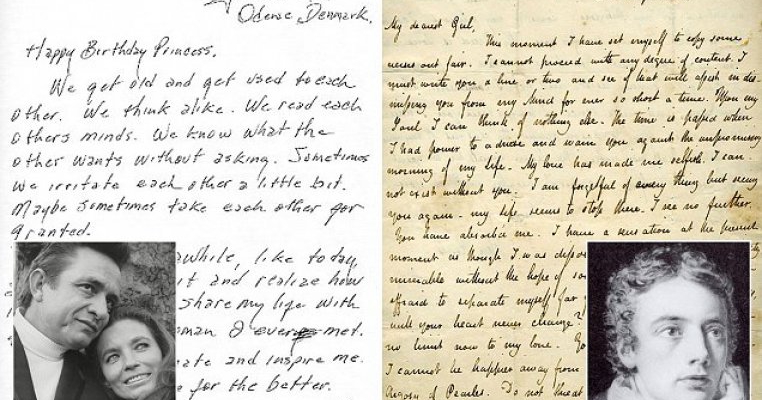 Odense Denmark.
Happy Birthday Princess,
We get old and get used to each
other. We think alike. We read each
others minds. We know what the
other wants without asking. Sometimes
we irritate each other a little bit.
Maybe sometimes take each other for
granted.
awhile, like today,
it and realize how
share my life with
man I ever met.
ate and inspire me.
for the better.
My dearest Girl,
This moment I have set myself to copy some
verses out fair. I cannot proceed with any degree of content. I
must write you a line or two and see if that will assist in dis-
missing you from my Mind for ever so short a time. Upon my
Soul I can think of nothing else. The time is passed when
I had power to advise and warn you against the unpromising
morning of my life. My love has made me selfish. I can
not exist without you. I am forgetful of every thing but seeing
you again. my life seems to stop there. I see no further.
You have absorb'd me. I have a sensation at the present
moment as though I was
miserable without the hope of
afraid to separate myself far
will your heart never change?
no limit now to my love.
I cannot be happier away from
Argosy of Pearles. Do not threat